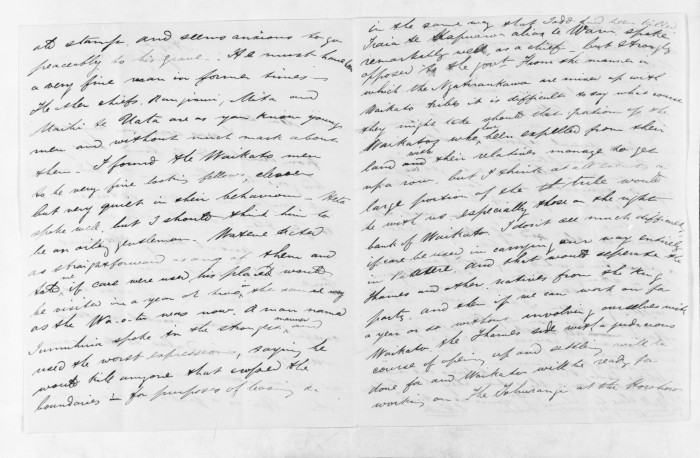 old stamp and seems anxious to go
peaceably to his grave. He must have been
a very fine man in former times —
The other chiefs, Mita and
Maihi te Uata are as you know young
men and without much mark about
them. I found the Waikato men
to be very fine looking fellows,
but very quiet in their behaviour —
spoke well, but I should think him to
be an oiley gentleman. acted
as straightforward as any of them and
if care were used his place would
be visited in a year or two, the same way
as the was now. A man named
spoke in the strongest manner and
used the worst expressions, saying he
would kill anyone that crossed the
boundaries — for purposes of leasing &
in the same way that Todd had been killed
te alias te spoke
remarkably well as a chief — but strongly
opposed to the govt From the manner in
which the are mixed up with
Waikato tribes it is difficult to say what course
they might take should that portion of the
Waikatos who been expelled from their
land with their relatives manage to get
up a row, but I think
large portion of the tribe would
be with us especially those on the right
bank of Waikato I don't see much difficulty
if care be used in carrying our way entirely
in . And that would seperate the
Thames and other natives from the King
party. and then if we can work on for
a year or so without involving ourselves with
Waikato, the Thames side with a judicious
course of opening up and settling will be
done for and Waikato will be ready for
working on. The at the